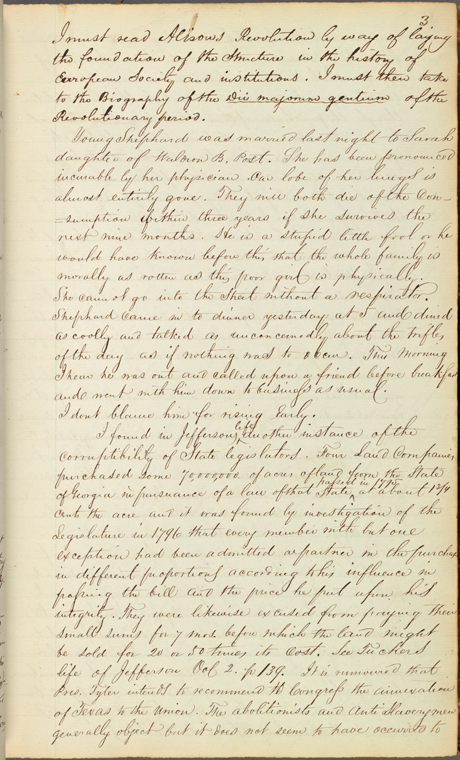 3
I must read Alison's Revolution by way of laying
the foundation of the structure in the history of
European Society and institutions. I must then take
to the Biography of the Dii majorum gentium of the
Revolutionary period.
Young Shiphard was married last night to Sarah
daughter of Walmon B. Post. She has been pronounced
incurable by her physician one lobe of her lungs is
almost entirely gone. They will both die of the Con-
-sumption within three years if she survives the
next nine months. He is a stupid little fool or he
would have known before this that the whole family is
morally as rotten as this poor girl is physically.
She cannot go into the street without a respirator.
Shiphard came in to dinner yesterday at 5 and dined
as coolly and talked as unconcernedly about the trifles
of the day as if nothing was to occur. This Morning
I hear he was out and called upon a friend before breakfast
and went with him down to business as usual
I dont blame him for rising Early.
I found in Jeffersons life another instance of the
corruptibility of State legislators. Four Land Companies
purchased some 7,000,000 of acres of land from the State
of Georgia in pursuance of a law of that State, passed in 1795 at about
cent the acre and it was found by investigation of the
Legislature in 1796 that every member with but one
exception had been admitted a partner in the purchase
in different proportions according to his influence in
passing the bill and the price he put upon his
integrity. They were likewise excused from paying their
small sums for 7 mos. before which the land might
be sold for 20 or 30 times its cost. See Tuckers
life of Jefferson Vol 2. p 139. It is rumoured that
Pres. Tyler intends to recommend to Congress the annexation
of Texas to the Union. The abolitionists and Anti Slavery men
generally object but it does not seem to have occurred to